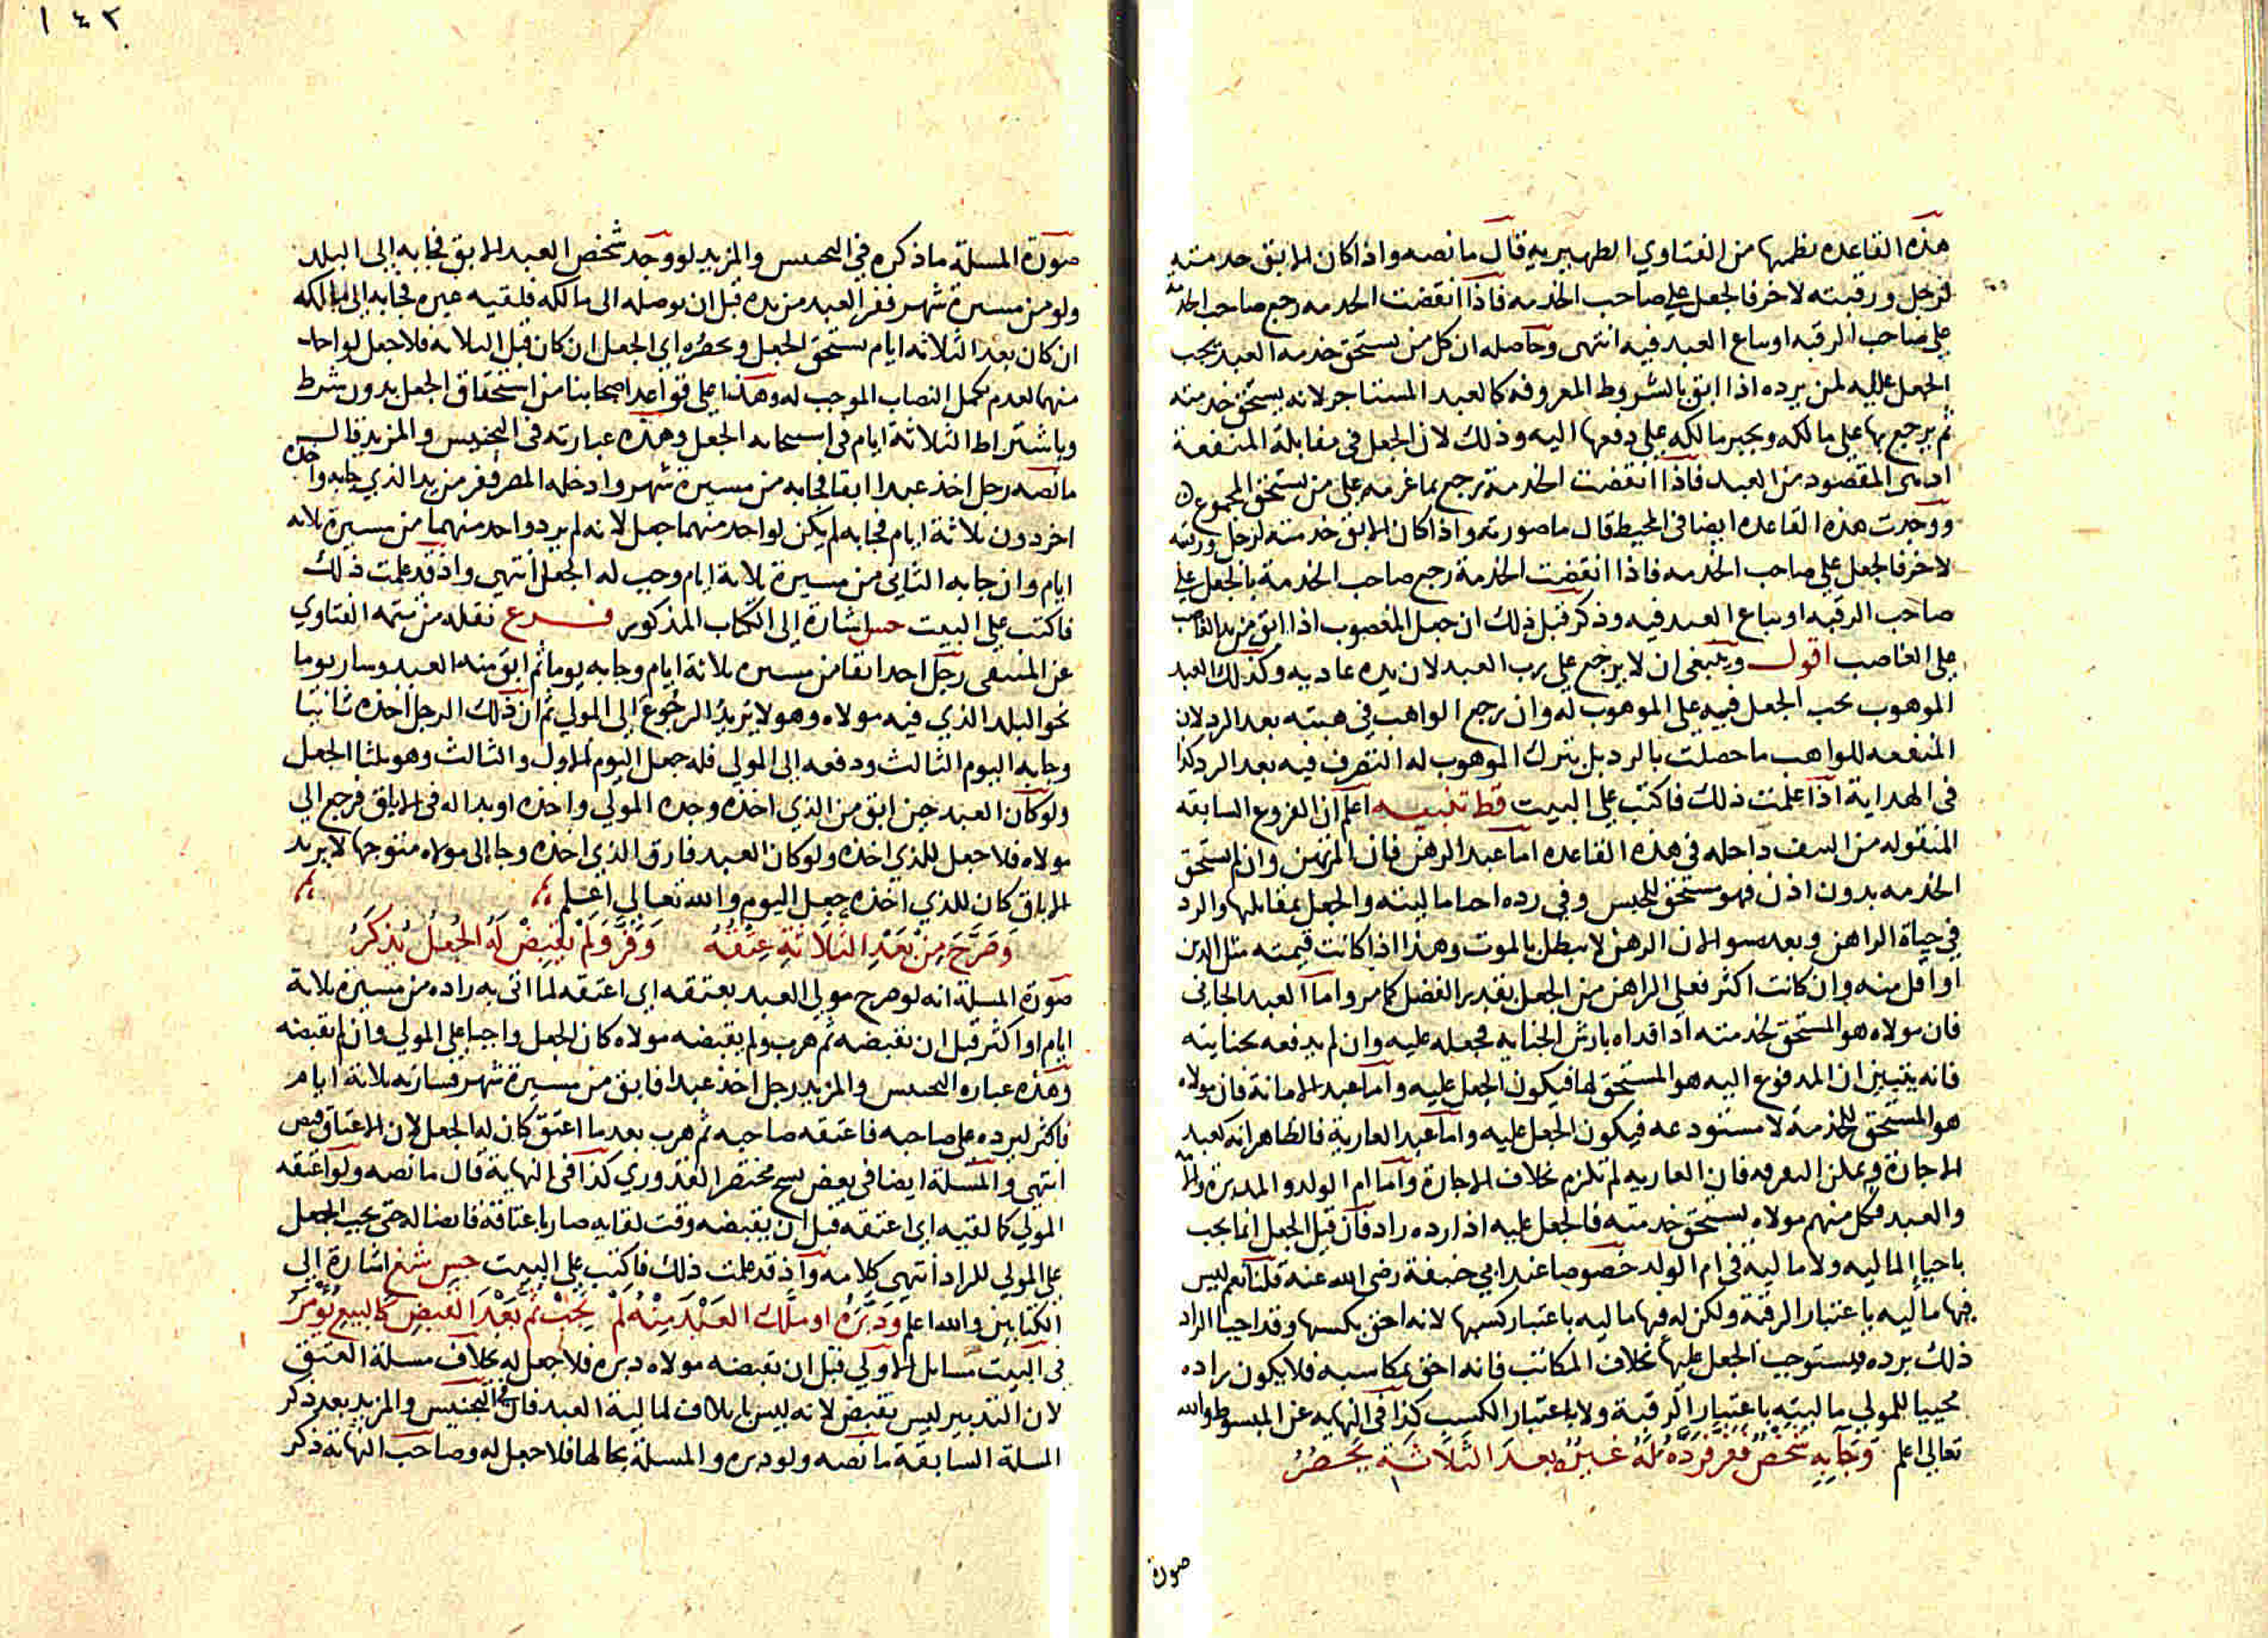 هذه القاعده نظمها من الفتاوي الظهيريه قال ما نصه واذا كان الابق خدمته
لرجل ورقبته لاخر فالجعل على صاحب الخدمه فاذا انقضت الخدمه رجع صاحب الخدمة
على صاحب الرقبه او بياع العبد فيه انتهى وحاصله ان كل من يستحق خدمه العبد يجب
الجعل عليه لمن يرده اذا ابق بالشروط المعروفه كالعبد المستاجر لانه يستحق خدمته
ثم يرجع بها على مالكه ويجبر مالكه على دفعها اليه وذلك لان الجعل في مقابلة المنفعة
اذ هى المقصود من العبد فاذا انقضت الخدمة رجع بما غرمه على من يستحق المجموع
ووجدت هذه القاعده ايضا في المحيط قال ما صورته واذا كان الابق خدمته لرجل ورقبته
لاخر فالجعل على صاحب الخدمه فاذا انقضت الخدمة رجع صاحب الخدمة بالجعل على
صاحب الرقبه او يباع العبد فيه وذكر قبل ذلك ان جعل المغصوب اذا ابق من يد الغاصب
على الغاصب اقول وينبغى ان لا يرجع على رب العبد لان يده عاديه وكذلك العبد
الموهوب يجب الجعل فيه على الموهوب له وان رجع الواهب في هبته بعد الرد لان
المنفعه للواهب ما حصلت بالرد بل بترك الموهوب له التصرف فيه بعد الرد كذا
في الهداية اذا علمت ذلك فاكتب على البيت قط تنبيه اعلم ان الفروع السابقه
المنقوله من داخله في هذه القاعده اما عبد الرهن فان المرتهن وان لم يستحق
الخدمه بدون اذن فهو مستحق للحبس وفي رده احيا ماليته والجعل بمقابلها والرد
في حياة الراهن وبعده سوا لان الرهن لا يبطل بالموت وهذا اذا كانت قيمته مثل الدين
او اقل منه وان كانت اكثر فعلى الراهن من الجعل بقدر الفضل كما مر واما العبد الجاني
فان مولاه هو المستحق لخدمته اذا فداه بارش الجنايه فجعله عليه وان لم يدفعه بجنايته
فانه يتبين ان المدفوع اليه هو المستحق لها فيكون الجعل عليه واما عبد الامانة فان مولاه
هو المستحق للخدمة لا مستودعه فيكون الجعل عليه واما عبد العارية فالظاهر انه كعبد
الاجارة ويمكن التفرقه فان العاريه لم تلزم بخلاف الاجارة واما ام الولد والمدبرة
والعبد فكل منهم مولاه يستحق خدمته فالجعل عليه اذا رده راد فان قيل الجعل انما يجب
باحيا الماليه ولا ماليه في ام الولد خصوصا عند ابي حنيفة رضى الله عنه قلنا نعم ليس
فيها ماليه باعتبار الرقبة ولكن له فيها ماليه باعتبار كسبها لانه احق بكسبها وقد احيا الراد
ذلك برده فيستوجب الجعل عليها بخلاف المكاتب فانه احق بمكاسبه فلا يكون راده
محييا للمولى ماليته باعتبار الرقبة ولا باعتبار الكسب كذا في النهايه عن المبسوط والله
تعالى اعلم وَجَابِهِ شَخْصٌ فَفَرَّ فَرَدَّهُ لَهُ غَيْرُهُ بَعدَ الثَلَاثَةِ يَحْصُرُ
صورة
١٤٢
صورة المسئلة ما ذكره في التجنيس والمزيد لو وجد شخص العبد الابق فجا به الى البلد
ولو من مسيرة شهر ففر العبد من يده قبل ان يوصله الى مالكه فلقيه غيره فجا به الى مالكه
ان كان بعد الثلاثه ايام يستحق الجعل ويحصره اي الجعل ان كان قبل الثلاثه فلا جعل لواحد
منهما لعدم تكمل النصاب الموجب له وهذا على قواعد اصحابنا من استحقاق الجعل بدون شرط
وباشتراط الثلاثة ايام في استحقاقه الجعل وهذه عبارته في التجنيس والمزيد قال
ما نصه رجل اخذ عبدا ابقا فجا به من مسيرة شهر وادخله المصر ففر من يد الذي جا به واخذه
اخر دون ثلاثة ايام فجا به لم يكن لواحد منهما جعل لانه لم يرد واحد منهما من مسيرة ثلاثه
ايام وان جا به الثاني من مسيرة ثلاثة ايام وجب له الجعل انتهى واذ قد علمت ذلك
فاكتب على البيت اشارة إلى الكتاب المذكور فرع نقله من تتمه الفتاوي
عن المنتقى رجل اخذ ابقا من مسيره ثلاثة ايام وجا به يوما ثم ابق منه العبد وسار يوما
نحو البلد الذي فيه مولاه وهو لا يريد الرجوع الى المولى ثم ان ذلك الرجل اخذه ثانيا
وجا به اليوم الثالث ودفعه الى المولى فله جعل اليوم الاول والثالث وهو ثلثا الجعل
ولو كان العبد حين ابق من الذي اخذه وجده المولى واخذه او بدا له في الاباق فرجع الى
مولاه فلا جعل للذي اخذه ولو كان العبد فارق الذي اخذه وجا الى مولاه متوجها لا يريد
الاباق كان للذي اخذه جعل اليوم والله تعالى اعلم
وَصَرَّحَ مِنْ بَعْدِ الثَّلَاثَةِ عِتْقَهُ وَفَرَّ وَلَمْ يَقْبِضْ لَهُ الجُعْلُ يُذكَرُ
صورة المسئلة انه لو صرح مولى العبد بعتقه اي اعتقه لما اتى به راده من مسيرة ثلاثة
ايام او اكثر قبل ان يقبضه ثم هرب ولم يقبضه مولاه كان الجعل واجبا على المولى وان لم يقبضه
وهذه عباره التجنيس والمزيد رجل اخذ عبدا فابق من مسيرة شهر فسار به ثلاثة ايام
فاكثر ليرده على صاحبه فاعتقه صاحبه ثم هرب بعدما اعتق كان له الجعل لان الاعتاق قبض
انتهى والمسئلة ايضا في بعض نسخ مختصر القدوري كذا في النهاية قال ما نصه ولو اعتقه
المولى كما لقيه اي اعتقه قبل ان يقبضه وقت لقايه صار باعتاقه قابضا له حتى يجب الجعل
على المولى للراد انتهى كلامه واذ قد علمت ذلك فاكتب على البيت اشارة الى
الكتابين والله اعلم وَدَبَّرَهُ او مَلَّكَ العَبْدَ مِنْهُ لَمْ يَجِبْ ثَمَّ بَعْدَ القَبضِ كَالبَيعِ يُؤْمَرُ
في البيت مسائل الاولى قبل ان يقبضه مولاه دبره فلا جعل له بخلاف مسئلة العتق
لان التدبير ليس بقبض لانه ليس باتلاف لمالية العبد قال في التجنيس والمزيد بعد ذكر
المسلة السابقة ما نصه ولو دبره والمسئلة بحالها فلا جعل له وصاحب النهاية ذكر